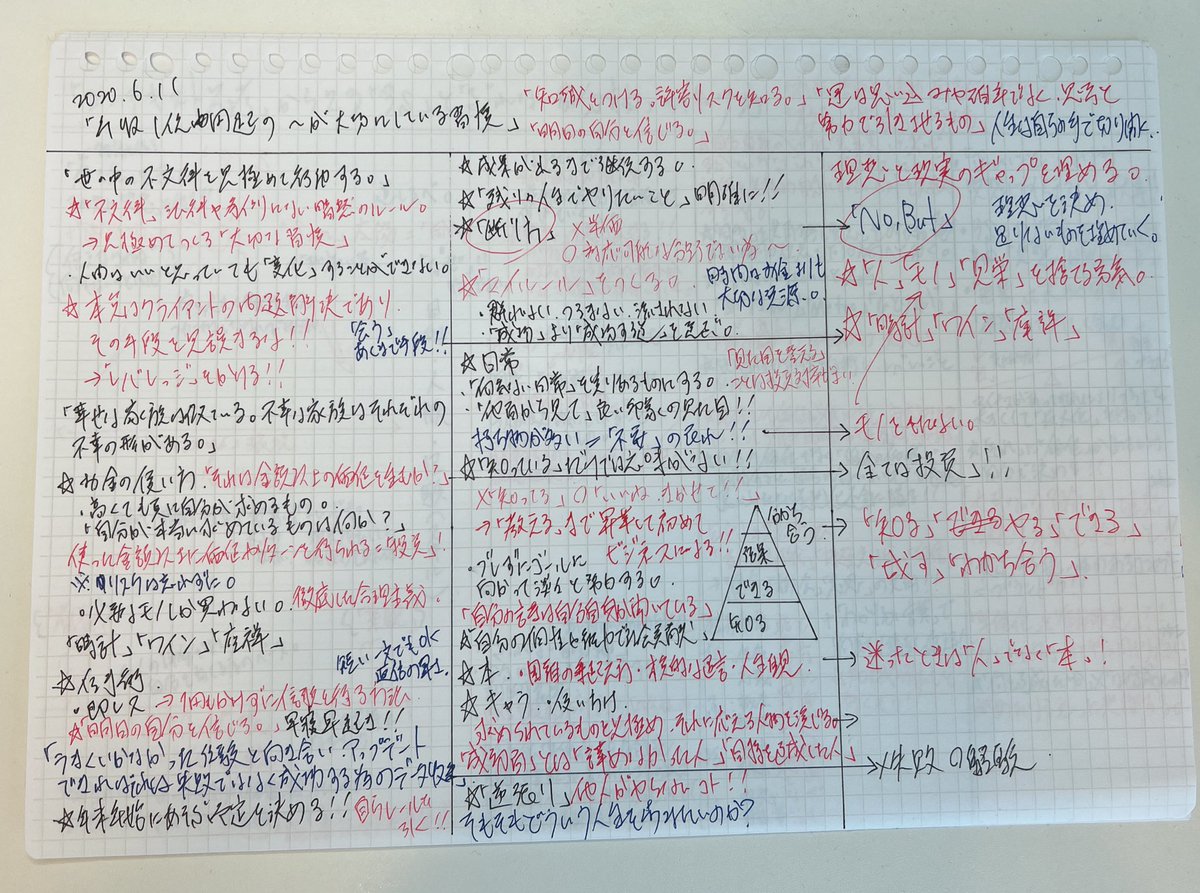 2020.6.11
「年収1億円起の〜が大切にしている習慣」
「知識をつける。許容リスクを知る。」
「明日の自分を信じる。」
「運は思い込みや確率でなく、思考と
努力で引きよせるもの」人生は自らの手で切り開く。
「世の中の不文律を見極めて行動する。」
☆「不文律」法律や慣例にない暗黙のルール。
→見極めてつくる「大切な習慣」
・人間はいいと思っていても「変化」することができない。
☆本質はクライアントの問題解決であり
その手段を見誤まるな!!
「会う」
あくまで手段!!
→「レバレッジ」をかける!!
「幸せな家族は似ている。不幸な家族はそれぞれの
不幸の形がある。」
☆お金の使い方「それは金額以上の価値を生むか?」
・高くても真に自分が求めるもの。
「自分が本当に求めているものは何か?」
使った金額以上に価値やリターンを得られる=「投資」!
※リスクは忘れずに。
・必要なモノしか買わない。徹底した合理主義
「時計」「ワイン」「座禅」
短い一文でもOK
返信の早さ
☆仕事術
・即レス→1円もかけずに信頼を得る方法
☆「明日の自分を信じる。」早寝早起き!!
「うまくいかなかった経験と向き合い アップデート
できればそれは失敗ではなく成功する為のデータ収集」
☆年末年始にあらかた予定を決める!!
自らレールを
引く!!
☆成果が出るまで継続する。
☆「残りの人生でやりたいこと」明確に!!
☆「断り方」×単価
☆「マイルール」をつくる。
時間はお金よりも
大切な資源。
・群れない つるまない 流されない
・「成功」より「成功する過程」を選ぶ。
☆日常
「見た目を整える」
ことは投資
「何気ない日常」を実りあるものにする。
・「他面から見て」良い印象の見た目!!
持ち物が多い=「不安」の表れ!!
☆「知っている」だけでは意味がない!!
×「知ってる」〇「いいね、きかせて!!」
→「教える」まで昇華して初めて
ビジネスになる!!
・ブレずにゴールに
向かって淡々と努力する。
「自分の言葉は自分自身が聞いている」
☆「自分の個性を組んで社会貢献」
☆本・困難の乗りこえ方・本質的な助言・人生観
☆キャラ・使い分け
求められているものを見極め、それに応える人物を演じる。
成功者とは「諦めなかった人」「目標を達成した人」
☆「逆張り」他人がやらないコト!!
そもそもどういう人生をおくりたいのか?
わかち
合う
結果
できる
知る
理想と現実のギャップを埋める。
「No, But」
理想を決め、
足りないものを埋めていく。
☆「人」「モノ」「見栄」を捨てる勇気。
☆「時計」「ワイン」「座禅」
モノをもたない。
全ては「投資」!!
「知る」「やる」「できる」
「成す」「わかち合う」
迷ったときは「人」でなく「本」!
失敗の経験